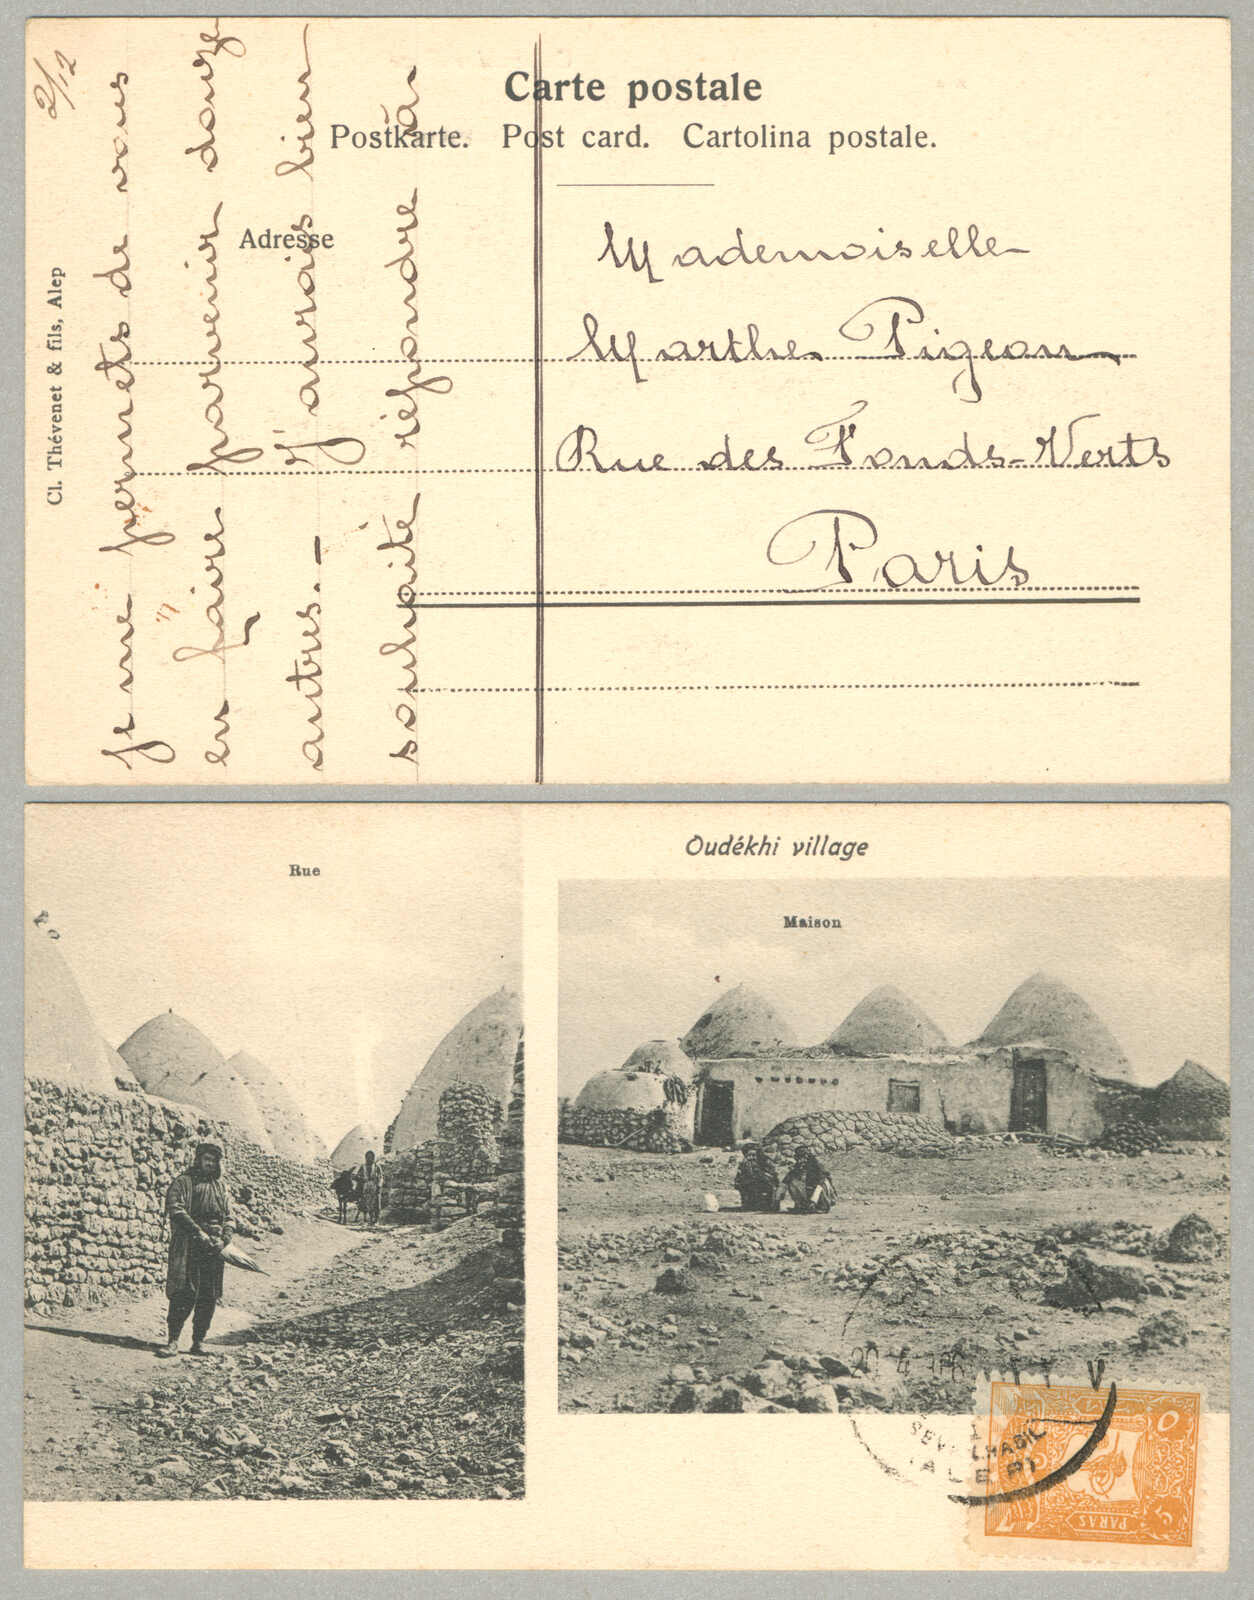 2/12
Carte postale
Postkarte. Post card. Cartolina postale.
Adresse
Cl. Thévenet & fils, Alep
je me permets de vous
en faire parvenir douze
autres. – J'aurais bien
souhaité répondre à
Mademoiselle
Marthe Pigeon
Rue des Fonds-Verts
Paris
Oudékhi village
Rue
Maison
20 4
ALEP
5
PARAS